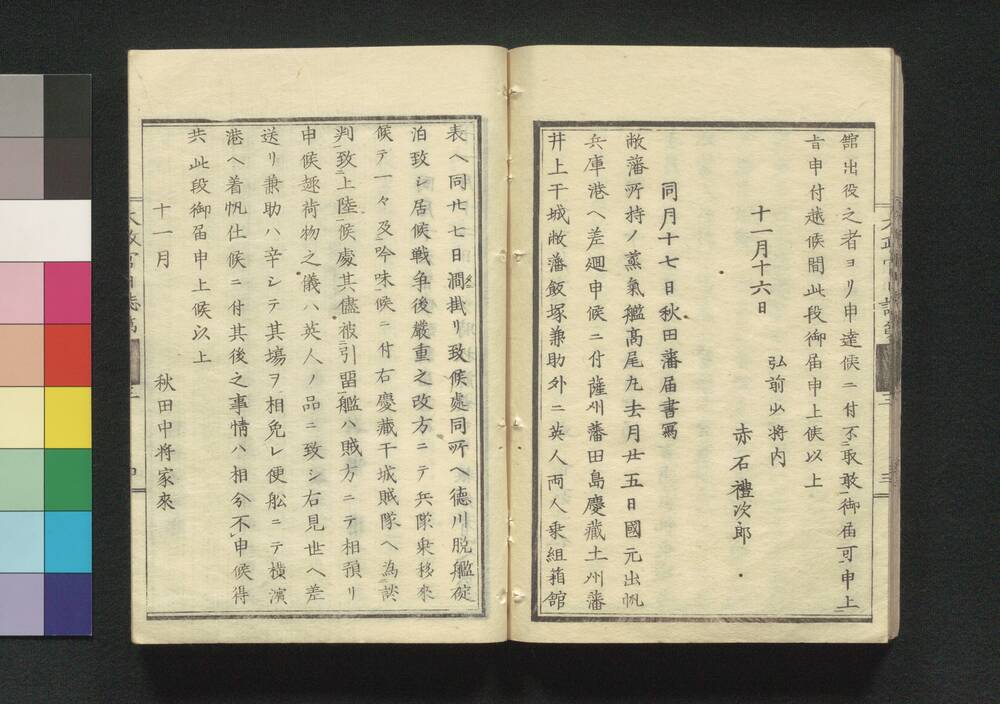 館出役之者ヨリ申達候ニ付不ニ取敢一御届可ニ申上一
旨申付越候間此段御届申上候以上
十一月十六日
弘前少将内
赤石禮次郎
同月十七日秋田藩届書寫
敝藩所持ノ蒸氣艦高尾丸去月廿五日國元出帆
兵庫港ヘ差廻申候ニ付薩州藩田島慶藏土州藩
井上干城敝藩飯塚兼助外ニ英人両人乗組箱館
表ヘ同廿七日澗掛リ致候處同所ヘ徳川脱艦碇
泊致シ居候戦争後嚴重之改方ニテ兵隊乗移來
候テ一々及ニ吟味一候ニ付右慶藏干城賊隊ヘ為ニ談
判一致ニ上陸一候處其儘被ニ引留一艦ハ賊方ニテ相預リ
申候趣荷物之儀ハ英人ノ品ニ致シ右見世ヘ差
送リ兼助ハ辛シテ其場ヲ相免レ便舩ニテ横濱
港ヘ着帆仕候ニ付其後之事情ハ相分不ニ申候得
共此段御届申上候以上
十一月
秋田中将家來